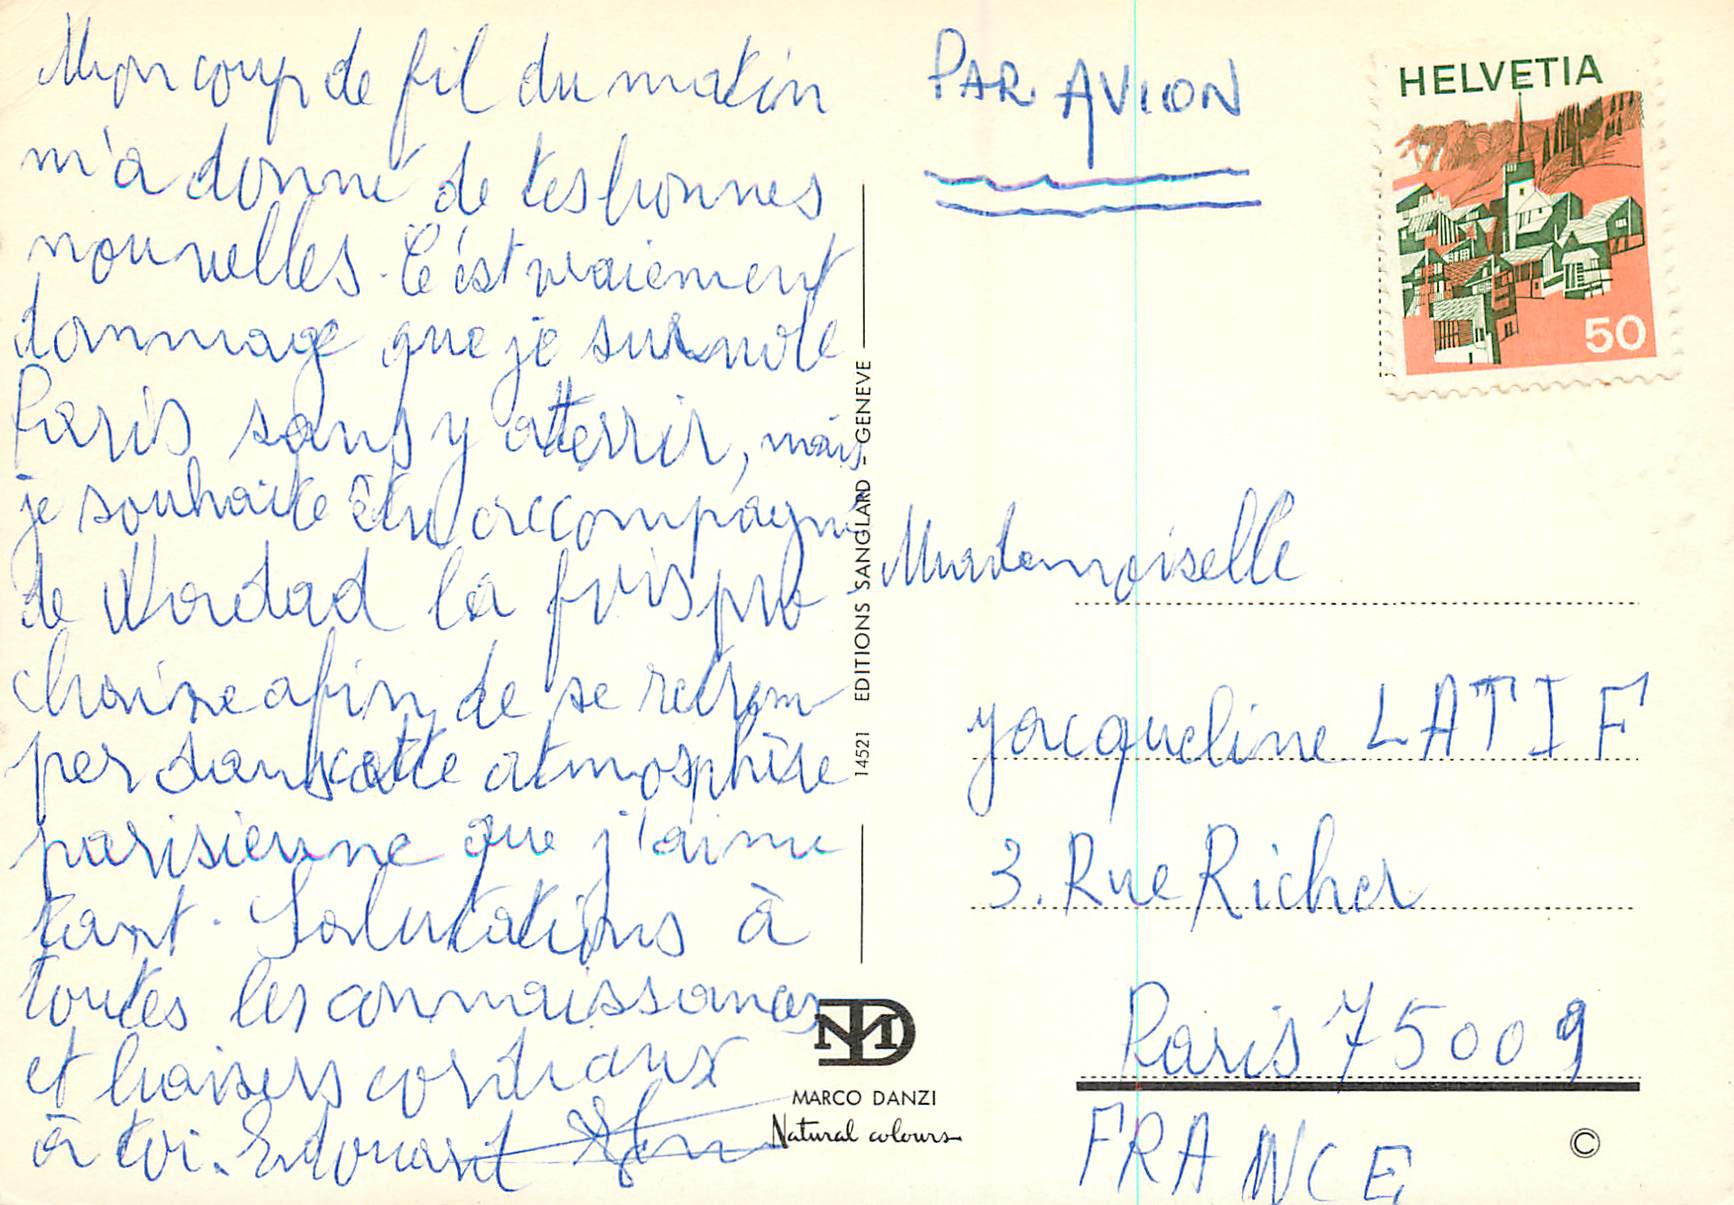 Mon coup de fil du matin
m'a donné de tes bonnes
nouvelles. C'est vraiement
dommage que je survole
Paris sans y atterrir, mais
je souhaite être accompagné
de la fois pro
chaine afin de se retrem
per dans cette atmosphère
parisienne que j'aime
tant. Salutations à
toutes les connaissances
et baisers cordiaux
à toi. Edouard
PAR AVION
HELVETIA
50
14521 EDITIONS SANGLARD - GENEVE
Mademoiselle
Jacqueline LATIF
3. Rue Richer
Paris 75009
FRANCE
MD
MARCO DANZI
Natural colours
©